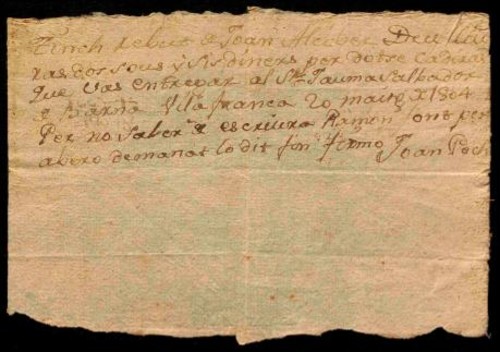 Tinch rebut de Joan Alerber Deu lliu
ras dos sous y sis diners per dotse Cadiras
que vas entregar al Sr. Jauma Salbador
a Barna Vila franca 20 mars de 1804
Per no saber de escriura Ramon
abero demanat lo dit son firmo Joan Poch